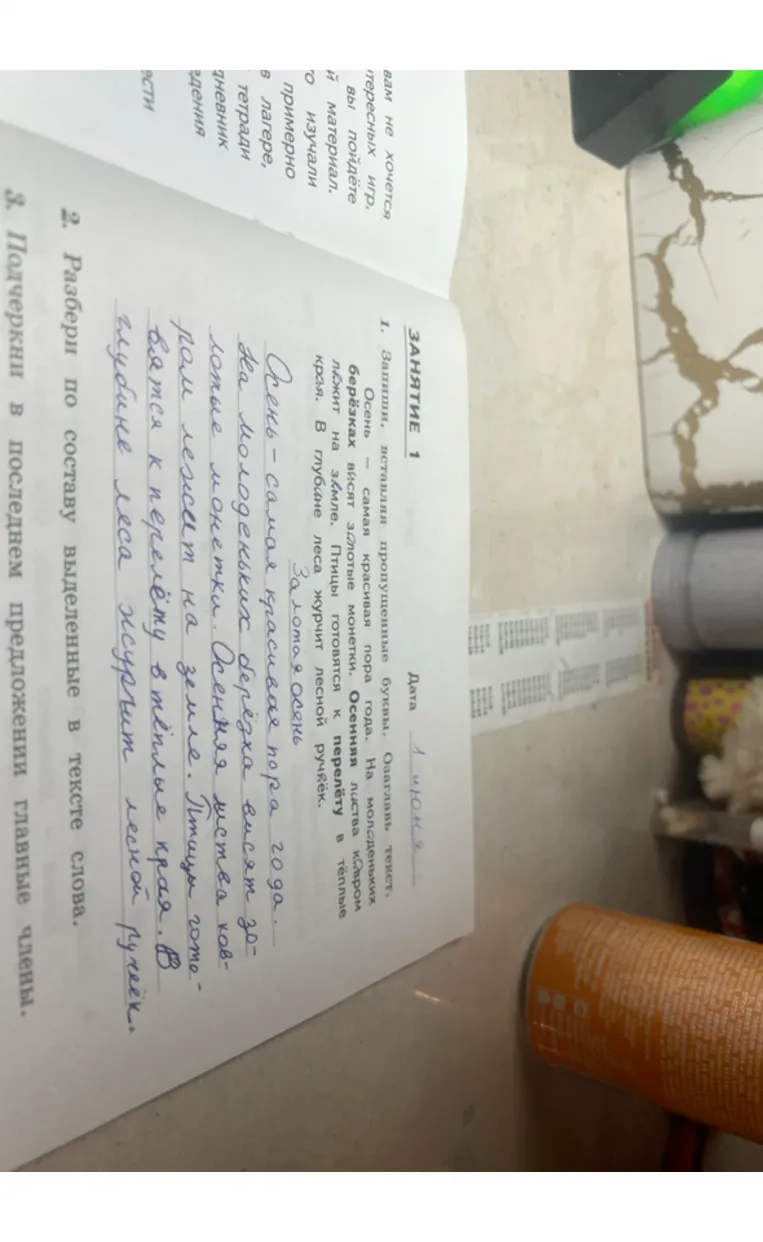 вам не хочется
тересных игр.
вы пойдёте
й материал.
о изучали
примерно
в лагере,
тетради
дневник
едения
ести
ЗАНЯТИЕ 1
Дата 1 июня
1. Запиши, вставляя пропущенные буквы. Озаглавь текст.
Осень — самая красивая пора года. На молоденьких
берёзках висят золотые монетки. Осенняя листва ковром
лежит на земле. Птицы готовятся к перелёту в тёплые
края. В глубине леса журчит лесной ручеёк.
Залотая осень
Осень - самая красивая пора года.
На молоденьких берёзка висят зо-
лотые монетки. Осенняя листва ков-
ром лежит на земле. Птицы гото-
вятся к перелёту в тёплые края. В
глубине леса журчит лесной ручеёк.
2. Разбери по составу выделенные в тексте слова.
3. Подчеркни в последнем предложении главные члены.